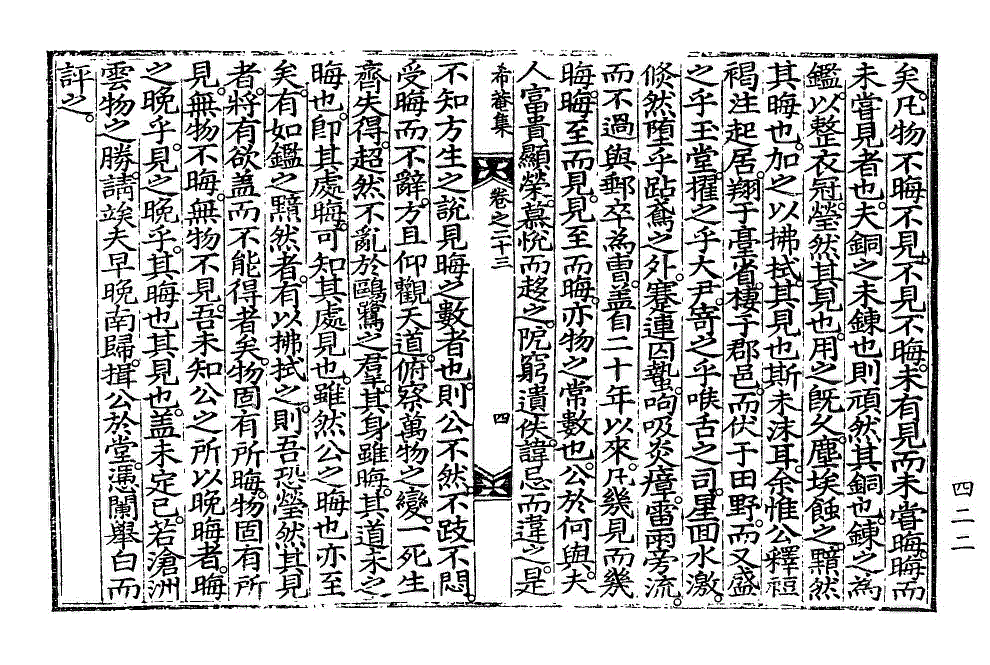 矣。凡物不晦不見。不見不晦。未有見而未嘗晦。晦而
未嘗見者也。夫銅之未鍊也則頑然其銅也。鍊之為
鑑以整衣冠。瑩然其見也。用之旣久。塵埃蝕之。黯然
其晦也。加之以拂拭。其見也斯未沫耳。余惟公釋短
褐注起居。翔于臺省。棲乎郡邑。而伏于田野。而又盛
之乎玉堂。擢之乎大尹。寄之乎喉舌之司。星回水激。
倐然墮乎跕鳶之外。蹇連囚蟄。呴吸炎瘴。雷雨旁流
而不過與郵卒為曺。盖自二十年以來。凡幾見而幾
晦。晦至而見。見至而晦。亦物之常數也。公於何與。夫
人富貴顯榮。慕悅而趍之。阨窮遺佚。諱忌而違之。是
希菴集
卷之二十三
四
不知方生之說見晦之數者也。則公不然。不跂不悶。
受晦而不辭。方且仰觀天道。俯察萬物之變。一死生
齊失得。超然不亂於鷗鷺之羣。其身雖晦。其道未之
晦也。卽其處晦。可知其處見也。雖然公之晦也亦至
矣。有如鑑之黯然者。有以拂拭之。則吾恐瑩然其見
者。將有欲盖而不能得者矣。物固有所晦。物固有所
見。無物不晦。無物不見。吾未知公之所以晩晦者。晦
之晩乎。見之晩乎。其晦也其見也。盖未定已。若滄洲
雲物之勝。請竢夫早晩南歸。揖公於堂。凭闌舉白而
評之。
四二二